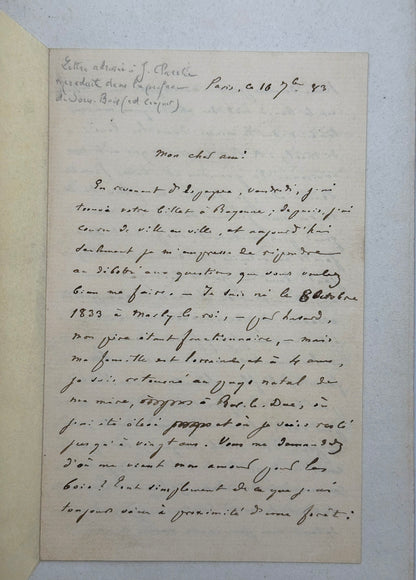 Lettre adressée à J. Claretie
reproduite dans la préface
de Sous-Bois (ed Conquet)
Paris, le 16 7bre 83
Mon cher ami,
En revenant d'Espagne, vendredi, j'ai
trouvé votre billet à Bayonne ; depuis j'ai
couru de ville en ville, et aujourd'hui
seulement je m'empresse de répondre
au débotté aux questions que vous voulez
bien me faire. — Je suis né le 8 Octobre
1833 à Marly-le-roi, — par hasard,
mon père étant fonctionnaire, — mais
ma famille est lorraine, et à 4 ans,
je suis retourné au pays natal de
ma mère, à Bar-le-Duc, où
j'ai été élevé et où je suis resté
jusqu'à vingt ans. Vous me demandez
d'où me vient mon amour pour les
bois ? Tout simplement de ce que j'ai
toujours vécu à proximité d'une forêt ;